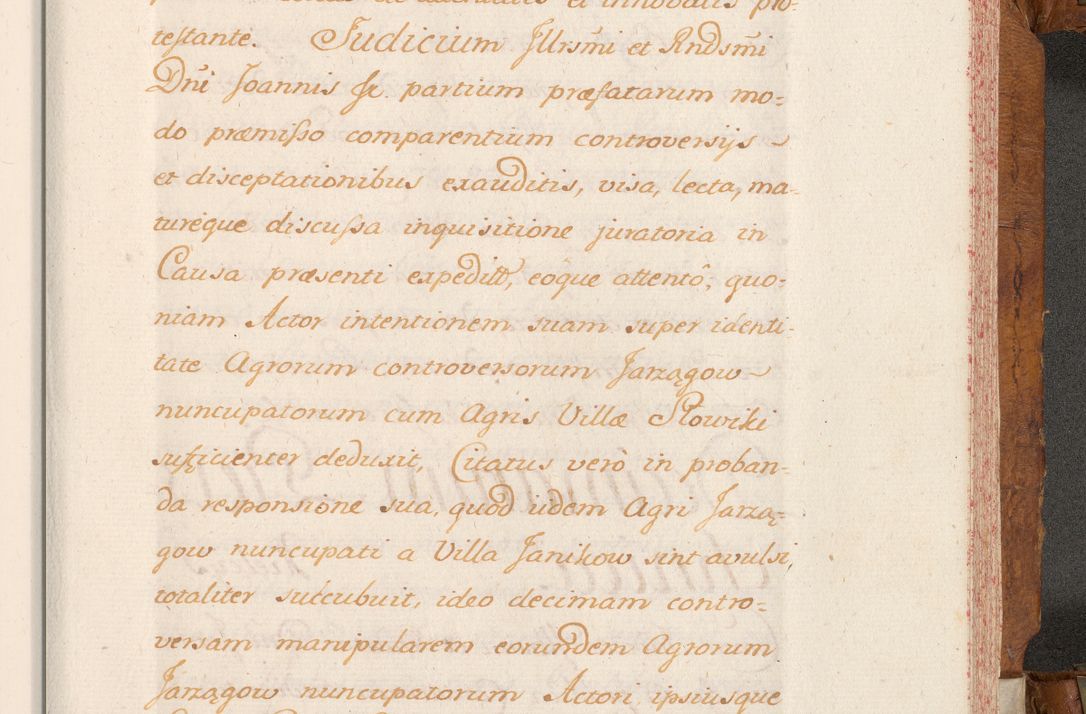 et innovatis pro-
testante. Judicium Jllrsmi et Rndsmi
Dni Joannis &c. partium præfatarum mo=
do præmisso comparentium controversijs
et disceptationibus exauditis, visa, lecta, ma-
tureque discussa inquisitione juratoria in
Causa præsenti expedita, eôque attentô, quo-
niam Actor intentionem suam super identi-
tate Agrorum controversorum Jarzągow
nuncupatorum cum Agris Villæ Słowiki
sufficienter deduxit, Citatus verò in proban-
da responsione sua, quod iidem Agri Jarzą=
gow nuncupati a Villa Janikow sint avulsi,
totaliter succubuit, ideo decimam contro=
versam manipularem eorundem Agrorum
Jarzągow nuncupatorum Actori ipsiusque